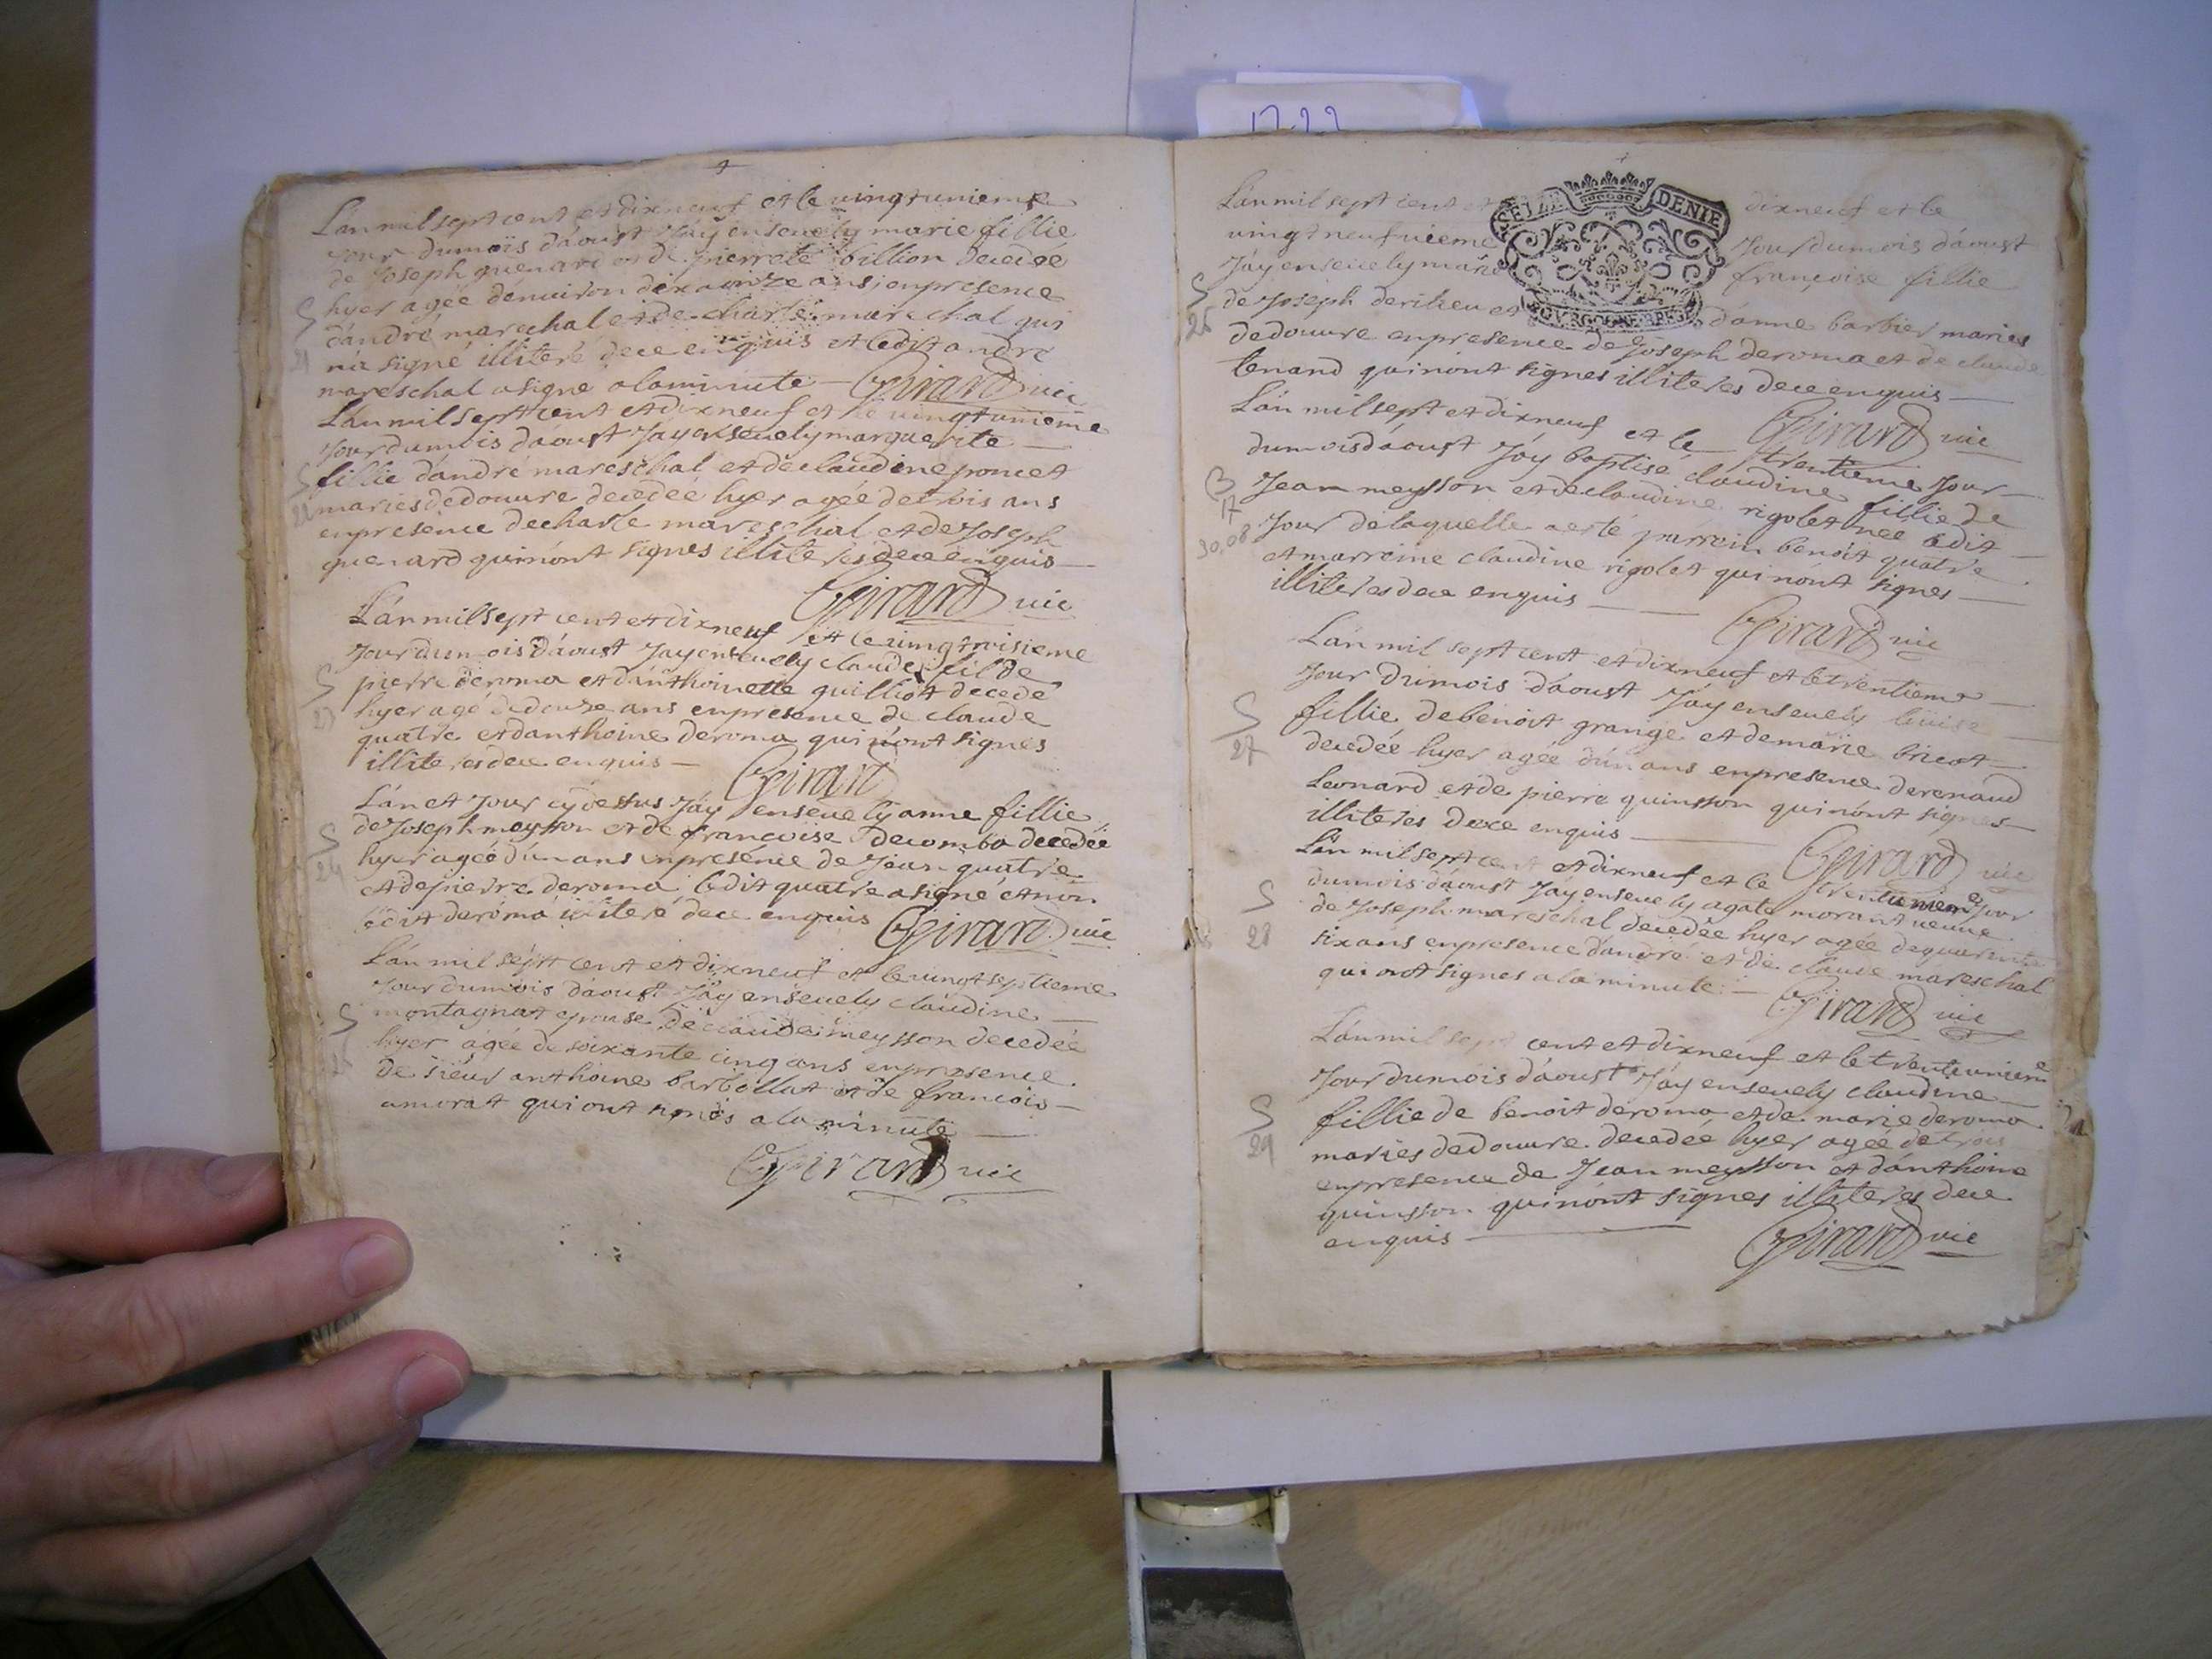 1722
Lán mil sept cent et dixneuf et le vingtunieme
jour du mois dáoust Jáy ensevely marie fillie
de Joseph guenard et de pierrete billion decedée
hyer agée dénviron dix ans en presence
dándré mareschal et de charle mareschal qui
ná signé illiteré de ce enquis et ledit andré
mareschal a signé a la minute — Girard vic
Lán mil sept cent et dixneuf et le vingtunieme
jour du mois dáoust Jay ensevely marguerite —
fillie dándré mareschal et de claudine poncet
maries de douvre decedée hyer agée de trois ans
en presence de charle mareschal et de Joseph
guenard qui nónt signes illiteres de ce enquis —
Girard vic
Lán mil sept cent et dixneuf et le vingtroisieme
jour du mois dáoust Jay ensevely claude fil de
pierre deroma et dánthoinette guilliot decedé
hyer agé de douze ans en presence de claude
quatre et danthoine deroma qui nónt signes
illiteres de ce enquis — Girard
Lán et jour cy dessus Jáy ensevely anne fillie
de Joseph meysson et de francoise decomba decedée
hyer agée dún ans en presence de Jean quatre
et de pierre deroma ledit quatre a signé et non
ledit deroma illiteré de ce enquis Girard vic
Lán mil sept cent et dixneuf et le vingt septieme
jour du mois dáoust Jáy ensevely claudine —
montagnat epouse de claude meysson decedée
hyer agée de soixante cinq ans en presence
de sieur anthoine barbollat et de francois —
amorat qui ont signés a la minute —
Girard vic
SEIZE DENIE
BOURGOGNE BRES
Lán mil sept cent et dixneuf et le
vingt neufvieme jour du mois dáoust
Jáy ensevely marie francoise fillie
S de Joseph derilieu et dánne barbier maries
26 de douvre en presence de Joseph deroma et de claude
tenand qui nónt signes illiteres de ce enquis —
Lán mil sept et dixneuf et le Girard vic
trentieme jour —
du mois dáoust Jáy baptisé claudine fillie de
B Jean meysson et de claudine rigolet née ledit —
17 30.08 jour de laquelle a esté parrein benoit quatre
et marreine claudine rigolet qui nónt signes —
illiteres de ce enquis — Girard vic
Lán mil sept cent et dixneuf et le trentieme —
jour du mois dáoust Jáy ensevely —
S fillie de benoit grange et de marie bricot —
27 decedée hyer agée dún ans en presence de renaud
Leonard et de pierre quinsson qui nónt signes —
illiteres de ce enquis — Girard vic
Lán mil sept cent et dixneuf et le trentuniem jour
du mois dáoust Jay ensevely agate morant veuve
S de Joseph mareschal decedée hyer agée de quarente
28 six ans en presence dándré et de claude mareschal
qui ont signes a la minute — Girard vic
Lán mil sept cent et dixneuf et le trenteuniem
jour du mois dáoust Jáy ensevely claudine —
S fillie de benoit deroma et de marie deroma
29 maries de douvre decedée hyer agée de trois
en presence de Jean meysson et dánthoine
quinsson qui nónt signes illiteres de ce
enquis — Girard vic